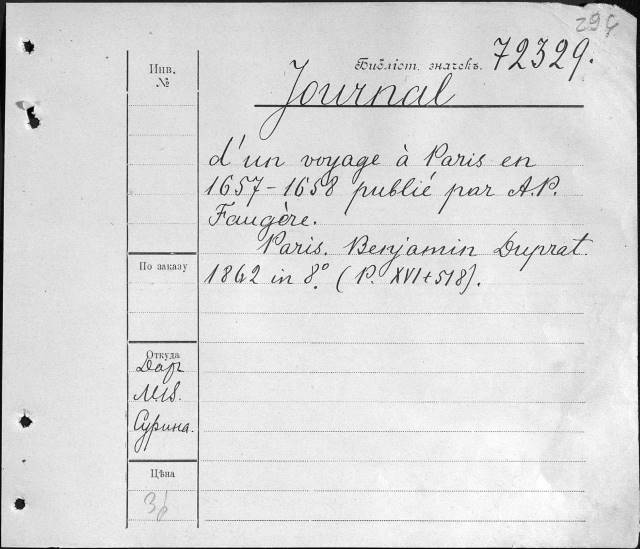 294
Инв.
№
Библіот. значекъ. 72329.
Journal
d'un voyage à Paris en
1657-1658 publié par A.P.
Faugère.
Paris. Benjamin Duprat.
1862 in 8.° (P. XVI+518).
По заказу
Откуда
Дар
Сурина.
Цѣна